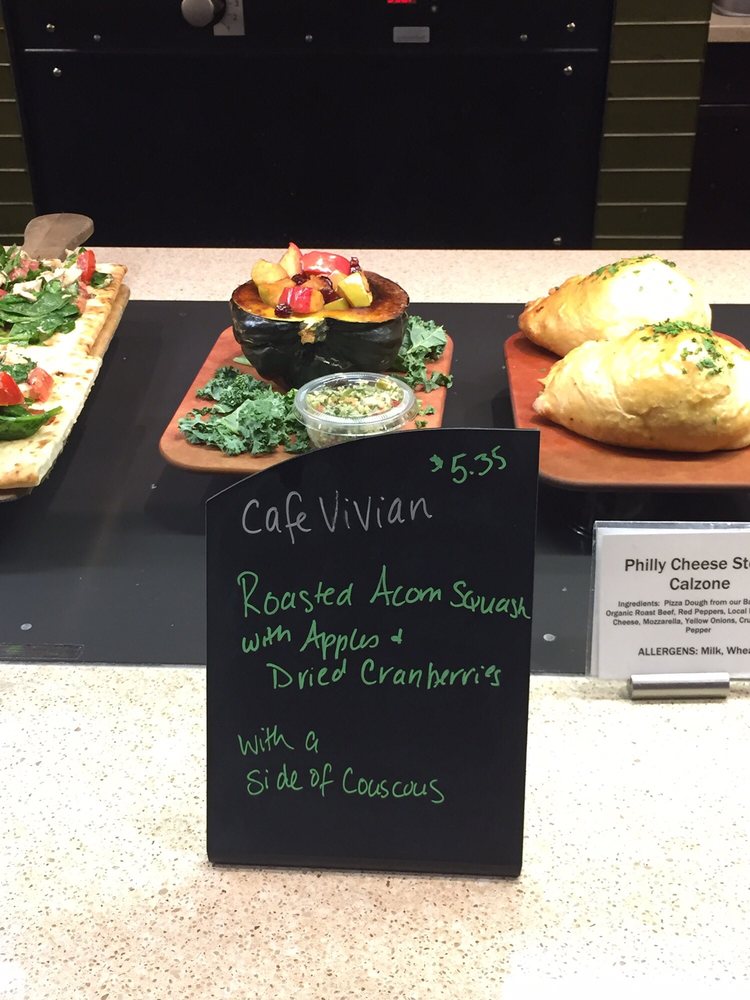 $5.35
Cafe Vivian
Roasted Acorn Squash
with Apples &
Dried Cranberries
with a
side of Couscous
Philly Cheese Ste
Calzone
Ingredients: Pizza Dough from our Ba
Organic Roast Beef, Red Peppers, Local
Cheese, Mozzarella, Yellow Onions, Cru
Pepper
ALLERGENS: Milk, Whea